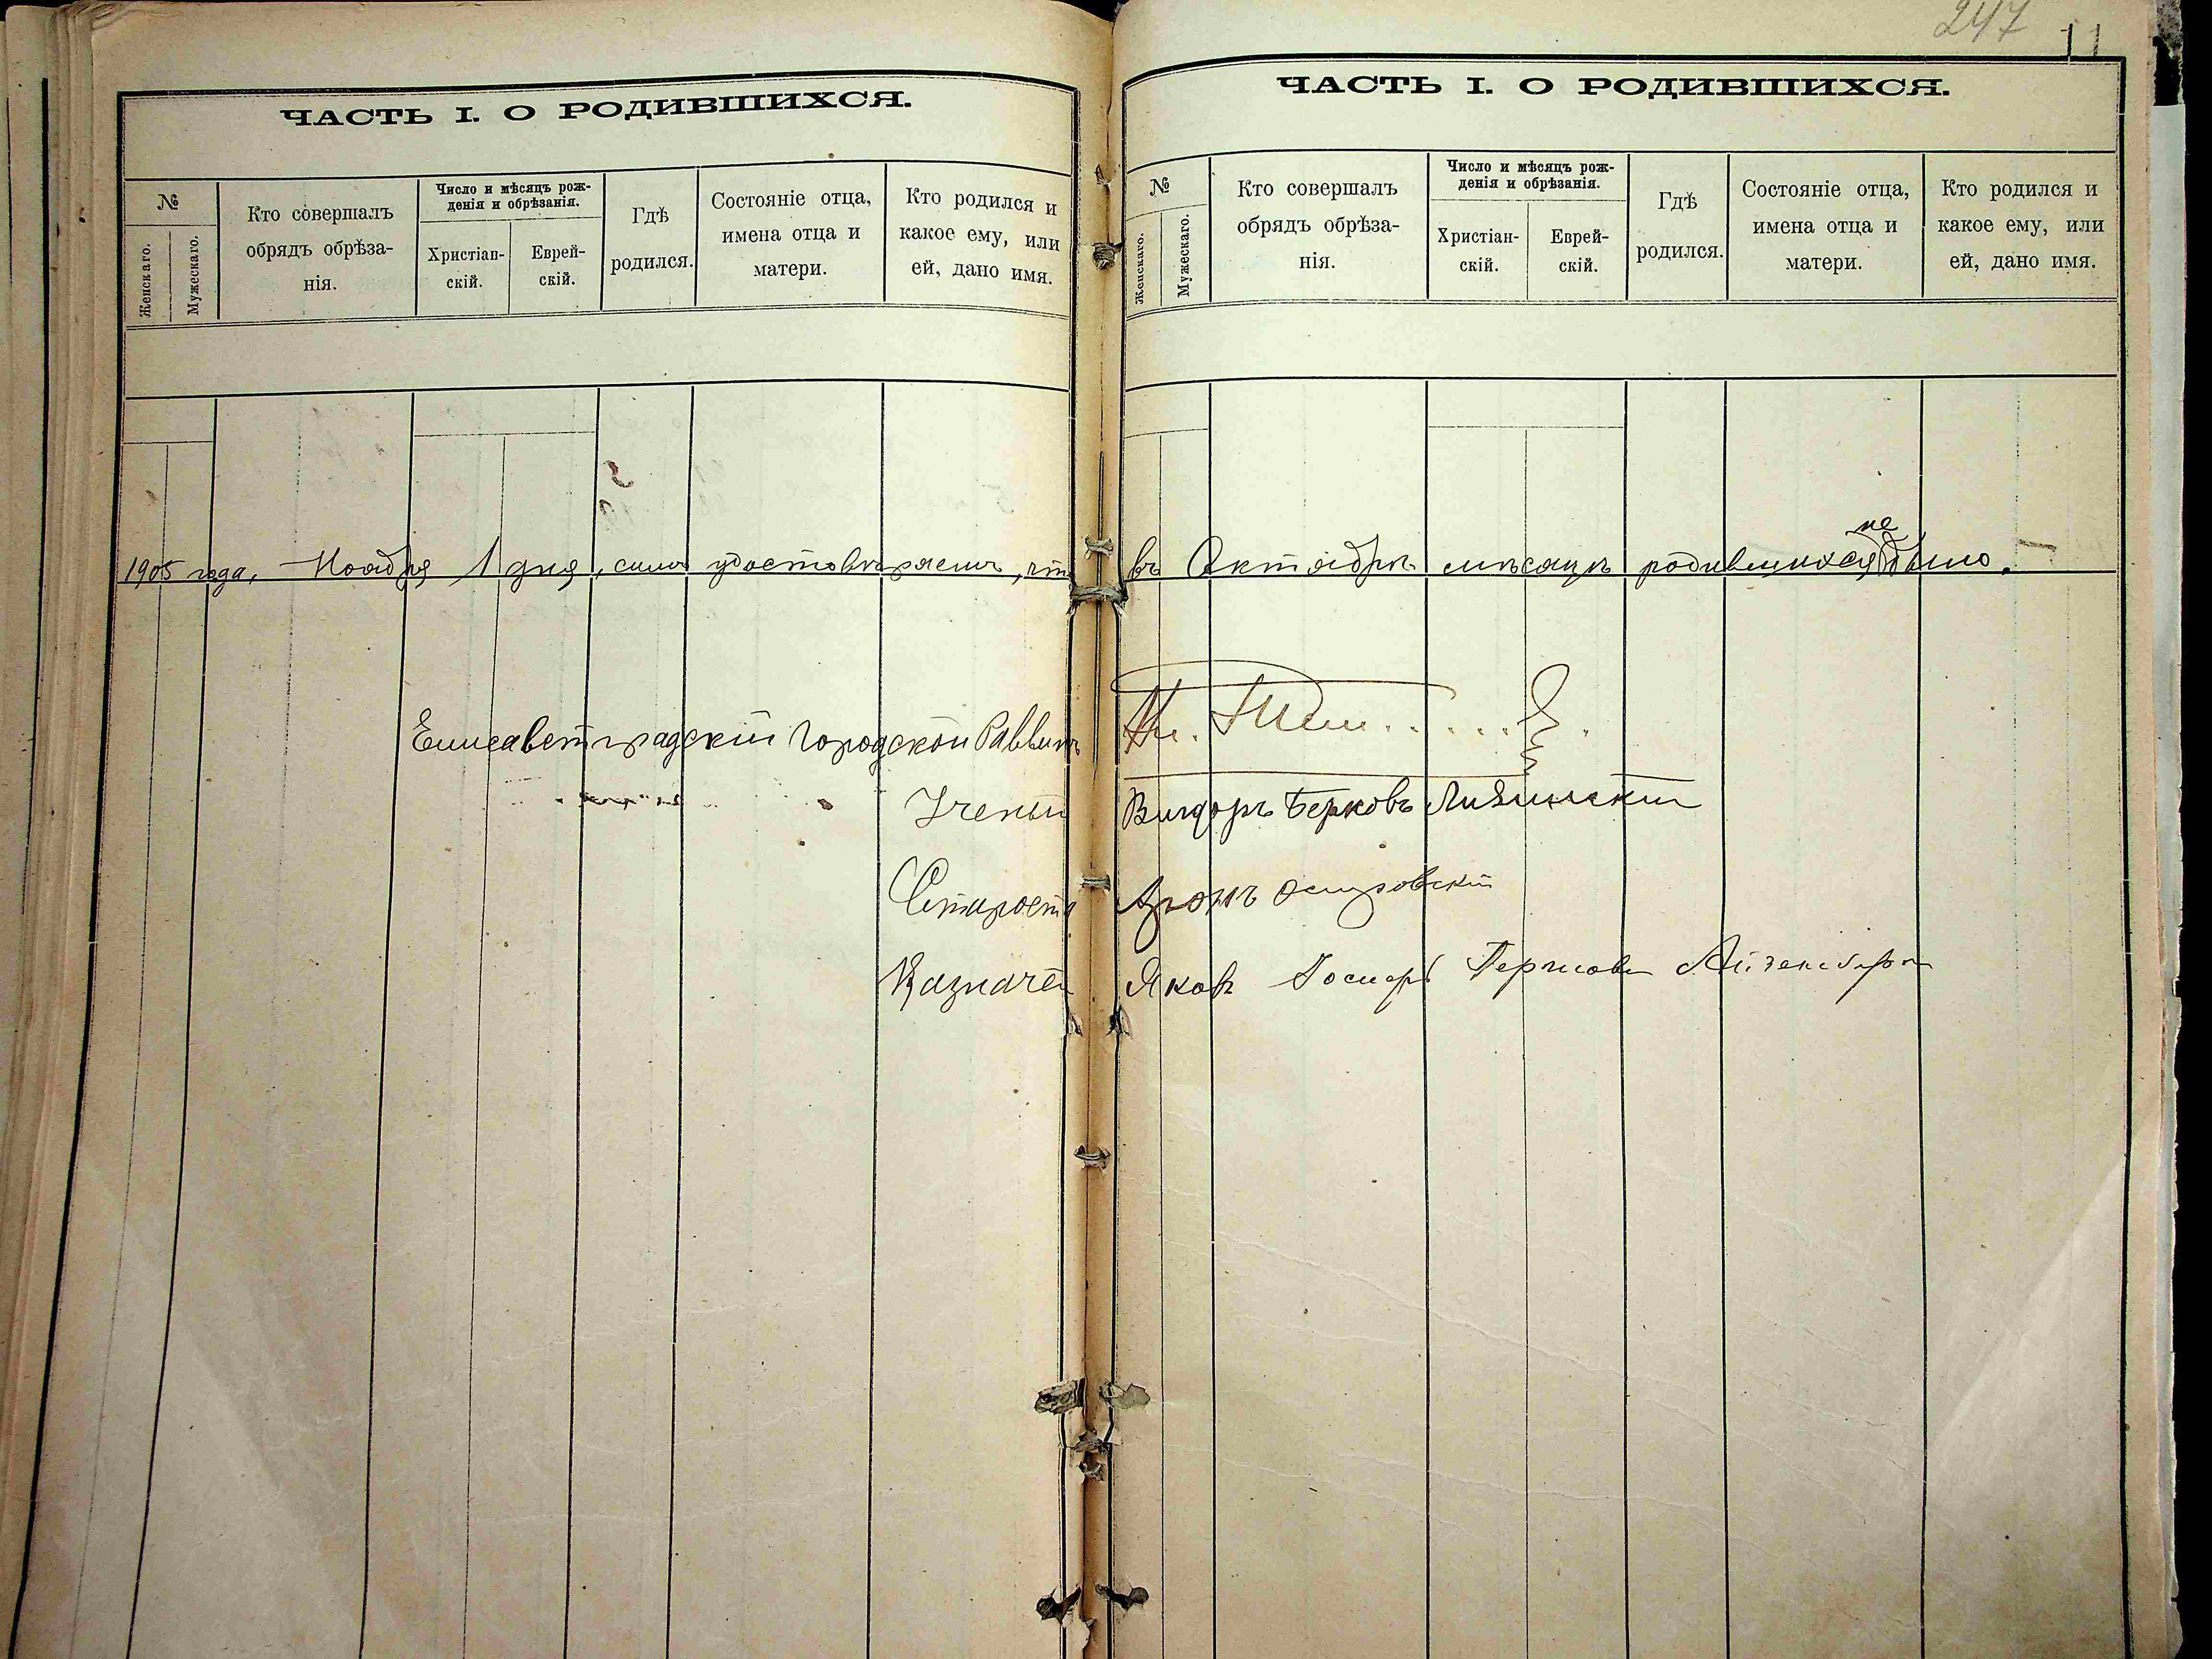 247 11
ЧАСТЬ I. О РОДИВШИХСЯ.
№
Женскаго.
Мужескаго.
Кто совершалъ
обрядъ обрѣза-
нія.
Число и мѣсяцъ рож-
денія и обрѣзанія.
Христіан-
скій.
Еврей-
скій.
Гдѣ
родился.
Состояніе отца,
имена отца и
матери.
Кто родился и
какое ему, или
ей, дано имя.
ЧАСТЬ I. О РОДИВШИХСЯ.
№
Женскаго.
Мужескаго.
Кто совершалъ
обрядъ обрѣза-
нія.
Число и мѣсяцъ рож-
денія и обрѣзанія.
Христіан-
скій.
Еврей-
скій.
Гдѣ
родился.
Состояніе отца,
имена отца и
матери.
Кто родился и
какое ему, или
ей, дано имя.
1905 года, Ноября 1 дня, симъ удостовѣряемъ, что въ Октябрѣ мѣсяцѣ родившихся не было.
Елисаветградскій Городской Раввинъ
Ученый Вигдоръ Берковъ
Староста Аронъ Осиповскій
Казначей Яковъ